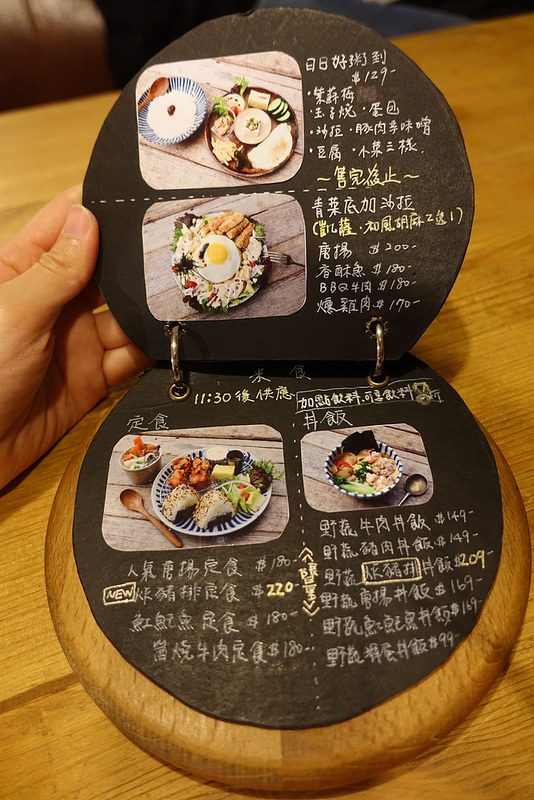 日日好粥到
$129-
·紫蘇梅
·玉子燒·蛋包
·沙拉·豚肉辛味噌
·豆腐·小菜三樣.
~售完為止~
青菜底加沙拉
(凱薩·和風胡麻2選1)
唐揚 $200-
香酥魚 $180-
BBQ牛肉 $180-
燻雞肉 $170-
米食
11:30後供應
加點飲料,可享飲料
折
定食
丼飯
人氣唐揚定食 $180-
NEW 炸豬排定食 $220-
魟魚定食 $180-
當燒牛肉定食 $180-
野蔬牛肉丼飯 $149-
野蔬豬肉丼飯 $149-
野蔬炸豬排丼飯 $209-
野蔬唐揚丼飯 $169-
野蔬魚丼飯 $169-
野蔬滑蛋丼飯 $99-